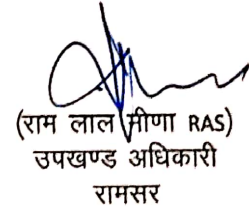 (राम लाल मीणा RAS)
उपखण्ड अधिकारी
रामसर